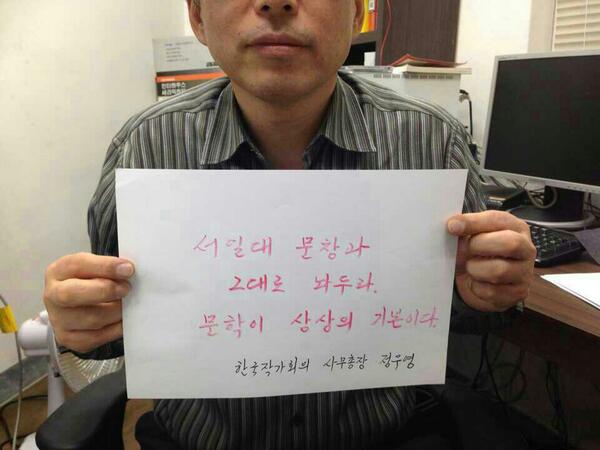 서일대 문창과
그대로 놔두라.
문학이 상상의 기본이다.
한국작가회의 사무총장 정우영